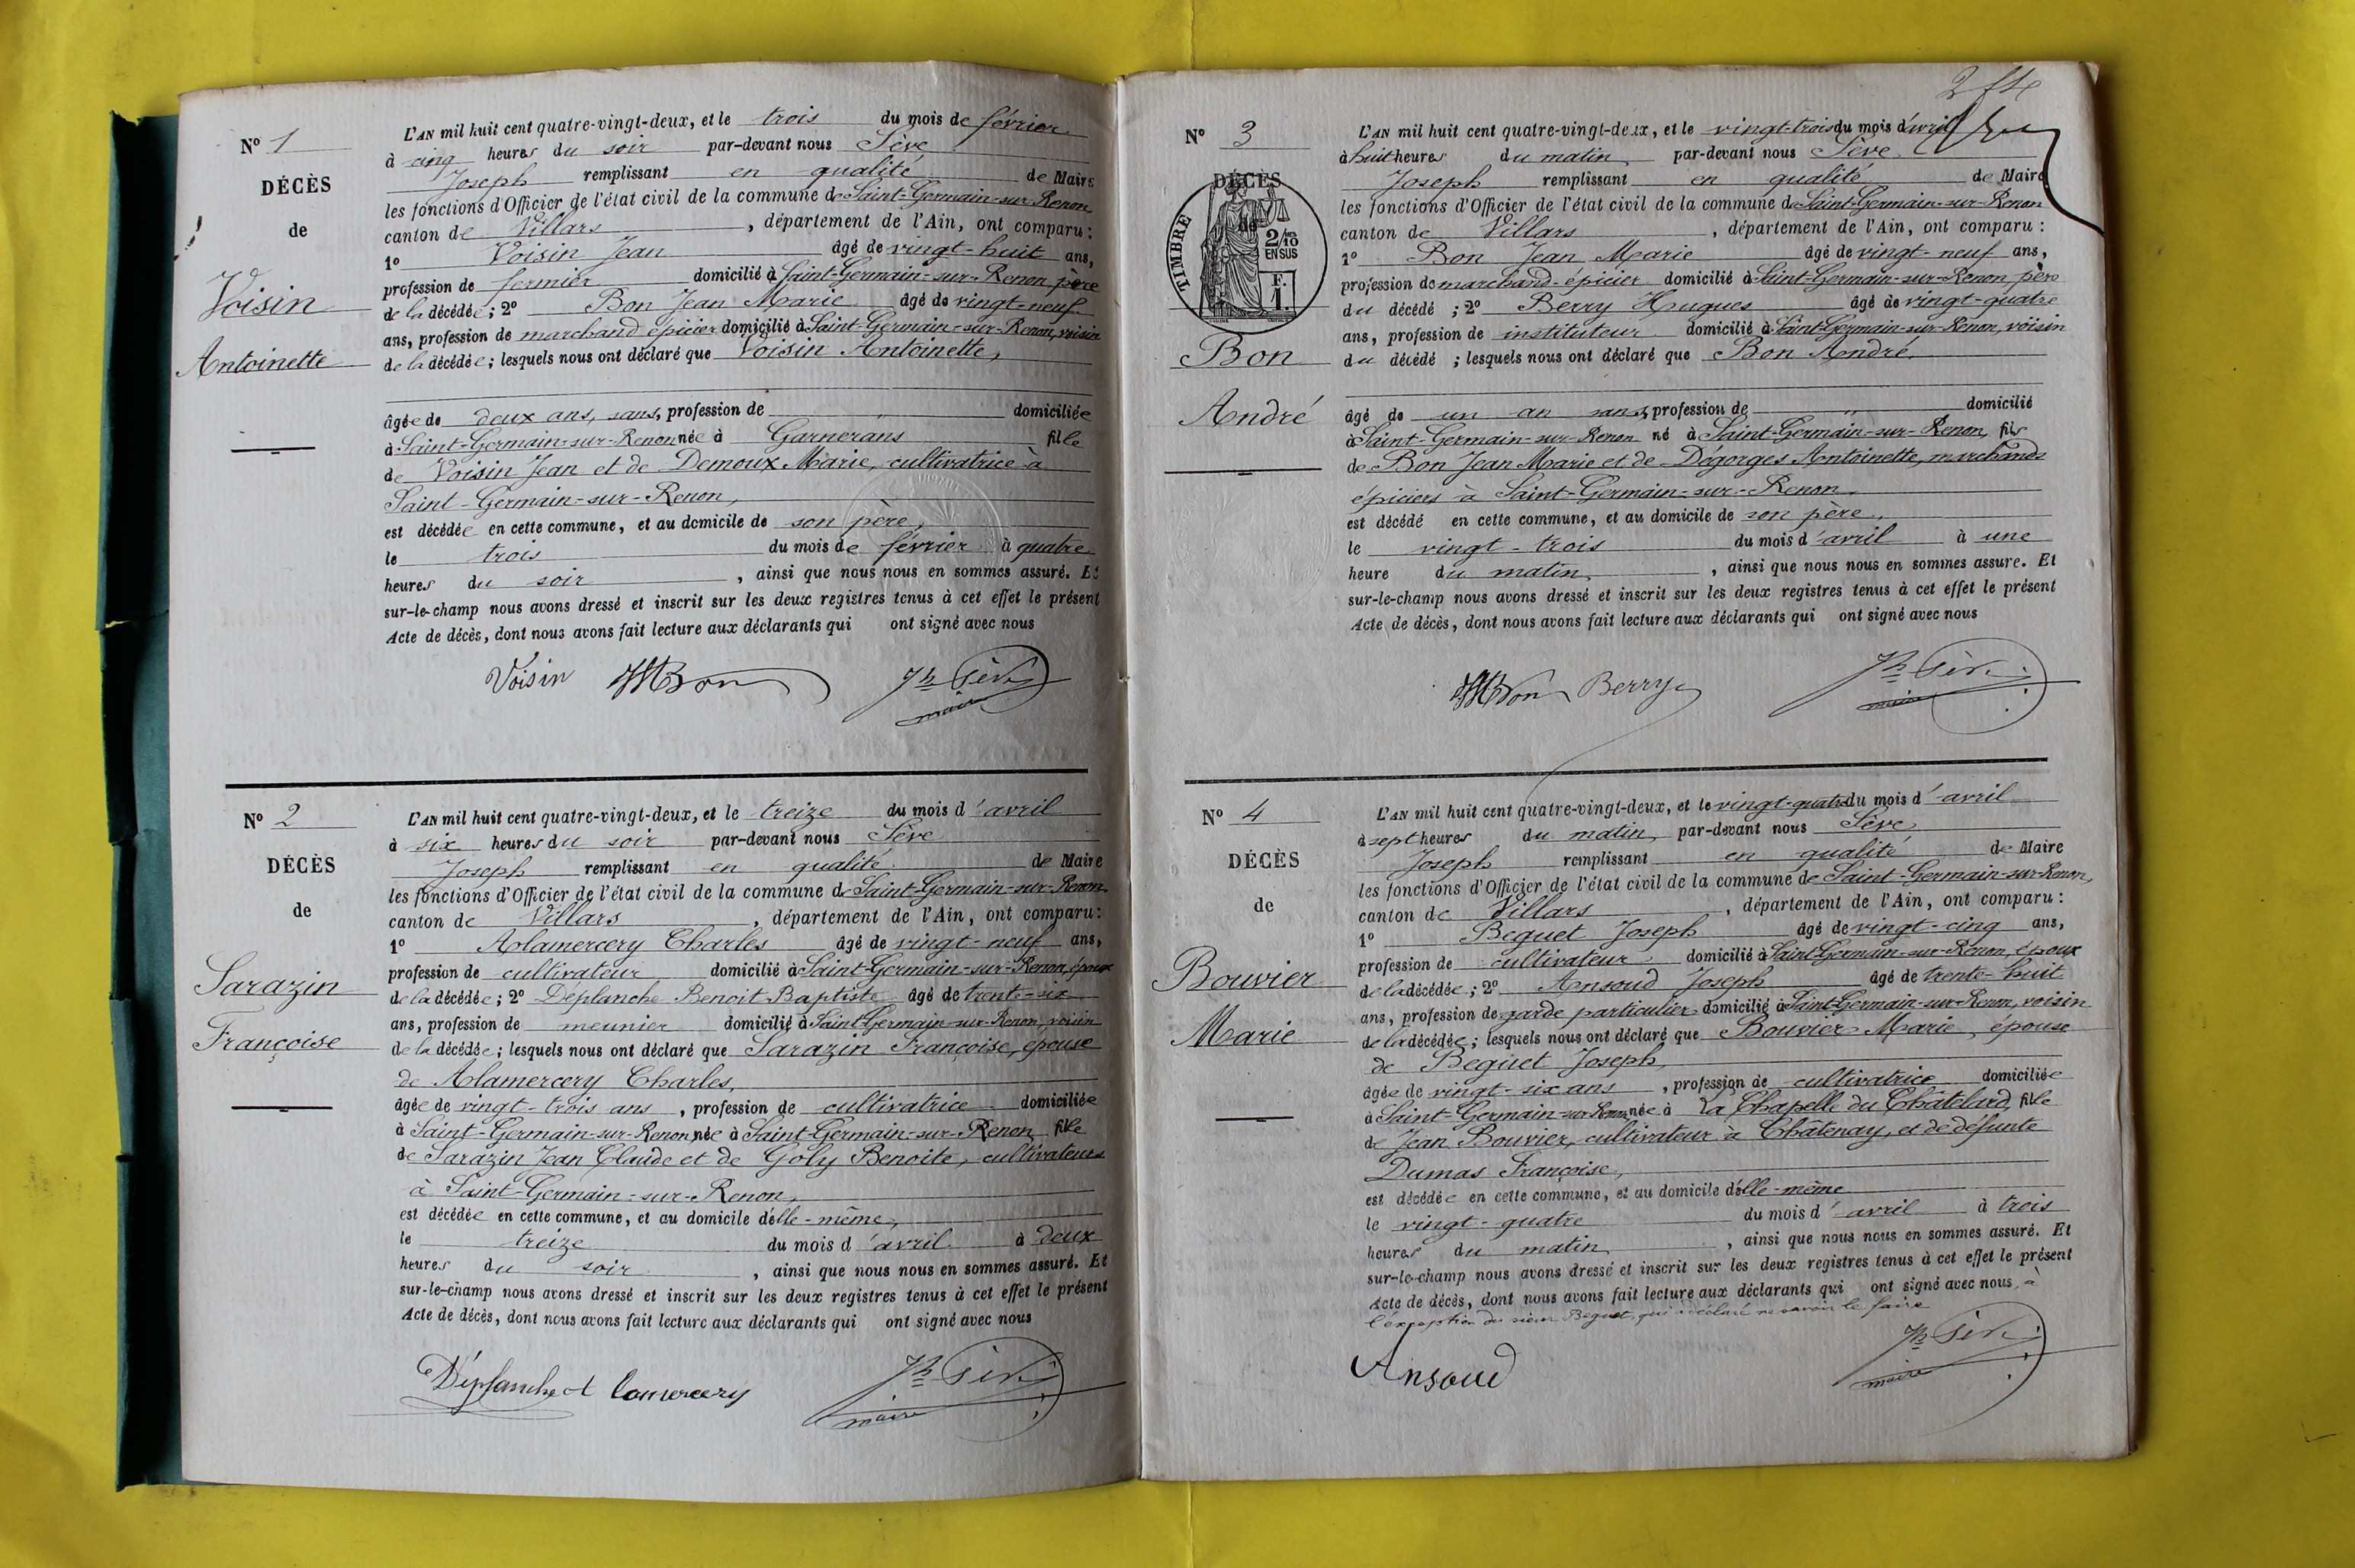 N° 1
DÉCÈS
de
Voisin
Antoinette
L'AN mil huit cent quatre-vingt-deux, et le trois du mois de février
à cinq heures du soir par-devant nous Sève
Joseph remplissant en qualité de Maire
les fonctions d'Officier de l'état civil de la commune de Saint-Germain-sur-Renon
canton de Villars, département de l'Ain, ont comparu :
1° Voisin Jean âgé de vingt-huit ans,
profession de fermier domicilié à Saint-Germain-sur-Renon, père
de la décédée ; 2° Bon Jean Marie âgé de vingt-neuf
ans, profession de marchand épicier domicilié à Saint-Germain-sur-Renon, voisin
de la décédée ; lesquels nous ont déclaré que Voisin Antoinette,
âgée de deux ans, sans, profession de domiciliée
à Saint-Germain-sur-Renon née à Garnerans fille
de Voisin Jean et de Demoux Marie, cultivatrice à
Saint-Germain-sur-Renon,
est décédée en cette commune, et au domicile de son père,
le trois du mois de février à quatre
heures du soir, ainsi que nous nous en sommes assuré. Et
sur-le-champ nous avons dressé et inscrit sur les deux registres tenus à cet effet le présent
Acte de décès, dont nous avons fait lecture aux déclarants qui ont signé avec nous
Voisin JMBon Jh Sève
maire
N° 2
DÉCÈS
de
Sarazin
Françoise
L'AN mil huit cent quatre-vingt-deux, et le treize du mois d'avril
à six heures du soir par-devant nous Sève
Joseph remplissant en qualité de Maire
les fonctions d'Officier de l'état civil de la commune de Saint-Germain-sur-Renon
canton de Villars, département de l'Ain, ont comparu :
1° Alamercery Charles âgé de vingt-neuf ans,
profession de cultivateur domicilié à Saint-Germain-sur-Renon, époux
de la décédée ; 2° Déplanche Benoit Baptiste âgé de trente-six
ans, profession de meunier domicilié à Saint-Germain-sur-Renon, voisin
de la décédée ; lesquels nous ont déclaré que Sarazin Françoise, épouse
de Alamercery Charles,
âgée de vingt-trois ans, profession de cultivatrice domiciliée
à Saint-Germain-sur-Renon née à Saint-Germain-sur-Renon fille
de Sarazin Jean Claude et de Goly Benoite, cultivateurs
à Saint-Germain-sur-Renon,
est décédée en cette commune, et au domicile d'elle-même,
le treize du mois d'avril à deux
heures du soir, ainsi que nous nous en sommes assuré. Et
sur-le-champ nous avons dressé et inscrit sur les deux registres tenus à cet effet le présent
Acte de décès, dont nous avons fait lecture aux déclarants qui ont signé avec nous
Déplanche A lamercery Jh Sève
maire
N° 3
DÉCÈS
de
TIMBRE
2/10
EN SUS
F.
1.
Bon
André
L'AN mil huit cent quatre-vingt-deux, et le vingt-trois du mois d'avril
à huit heures du matin par-devant nous Sève
Joseph remplissant en qualité de Maire
les fonctions d'Officier de l'état civil de la commune de Saint-Germain-sur-Renon
canton de Villars, département de l'Ain, ont comparu :
1° Bon Jean Marie âgé de vingt-neuf ans,
profession de marchand-épicier domicilié à Saint-Germain-sur-Renon, père
du décédé ; 2° Berry Hugues âgé de vingt-quatre
ans, profession de instituteur domicilié à Saint-Germain-sur-Renon, voisin
du décédé ; lesquels nous ont déclaré que Bon André,
âgé de un an sans, profession de " domicilié
à Saint-Germain-sur-Renon né à Saint-Germain-sur-Renon, fils
de Bon Jean Marie et de Dégorges Antoinette, marchands
épiciers à Saint-Germain-sur-Renon,
est décédé en cette commune, et au domicile de son père,
le vingt-trois du mois d'avril à une
heure du matin, ainsi que nous nous en sommes assuré. Et
sur-le-champ nous avons dressé et inscrit sur les deux registres tenus à cet effet le présent
Acte de décès, dont nous avons fait lecture aux déclarants qui ont signé avec nous
JMBon Berry Jh Sève
maire
N° 4
DÉCÈS
de
Bouvier
Marie
L'AN mil huit cent quatre-vingt-deux, et le vingt-quatre du mois d'avril
à sept heures du matin, par-devant nous Sève,
Joseph remplissant en qualité de Maire
les fonctions d'Officier de l'état civil de la commune de Saint-Germain-sur-Renon,
canton de Villars, département de l'Ain, ont comparu :
1° Beguet Joseph âgé de vingt-cinq ans,
profession de cultivateur domicilié à Saint-Germain-sur-Renon, époux
de la décédée ; 2° Ansoud Joseph âgé de trente-huit
ans, profession de garde particulier domicilié à Saint-Germain-sur-Renon, voisin
de la décédée ; lesquels nous ont déclaré que Bouvier Marie, épouse
de Beguet Joseph,
âgée de vingt-six ans, profession de cultivatrice domiciliée
à Saint-Germain-sur-Renon née à La Chapelle du Châtelard, fille
de Jean Bouvier, cultivateur à Châtenay, et de défunte
Dumas Françoise,
est décédée en cette commune, et au domicile d'elle-même
le vingt-quatre du mois d'avril à trois
heures du matin, ainsi que nous nous en sommes assuré. Et
sur-le-champ nous avons dressé et inscrit sur les deux registres tenus à cet effet le présent
Acte de décès, dont nous avons fait lecture aux déclarants qui ont signé avec nous, à
l'exception du sieur Beguet, qui a déclaré ne savoir le faire
Ansoud Jh Sève
maire